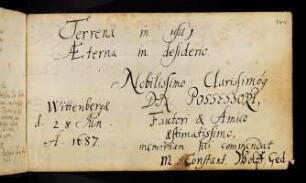 Terrena in usu,
Æterna in desiderio.
Nobilissimo Clarissimoq
DN. POSSESSORI,
Fautori & Amico
æstimatissimo,
memoriam sui commendat
M. Constant.
Wittenbergæ
d. 28 Jun.
A. 1687.